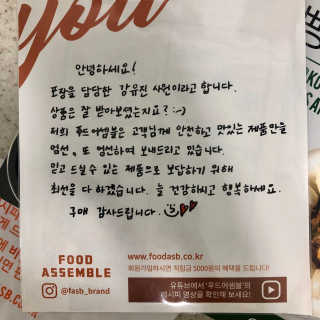 you
안녕하세요!
포장을 담당한 강유진 사원이라고 합니다.
상품은 잘 받아보셨는지요? :-)
저희 푸드어셈블은 고객님께 안전하고 맛있는 제품만을
엄선, 또 엄선하여 보내드리고 있습니다.
믿고 드실 수 있는 제품으로 보답하기 위해
최선을 다 하겠습니다. 늘 건강하시고 행복하세요.
구매 감사드립니다.
FOOD
ASSEMBLE
@fasb_brand
www.foodasb.co.kr
회원가입하시면 적립금 5000원의 혜택을 드립니다!
유튜브에서 '푸드어셈블'의
레시피 영상을 확인해 보세요!